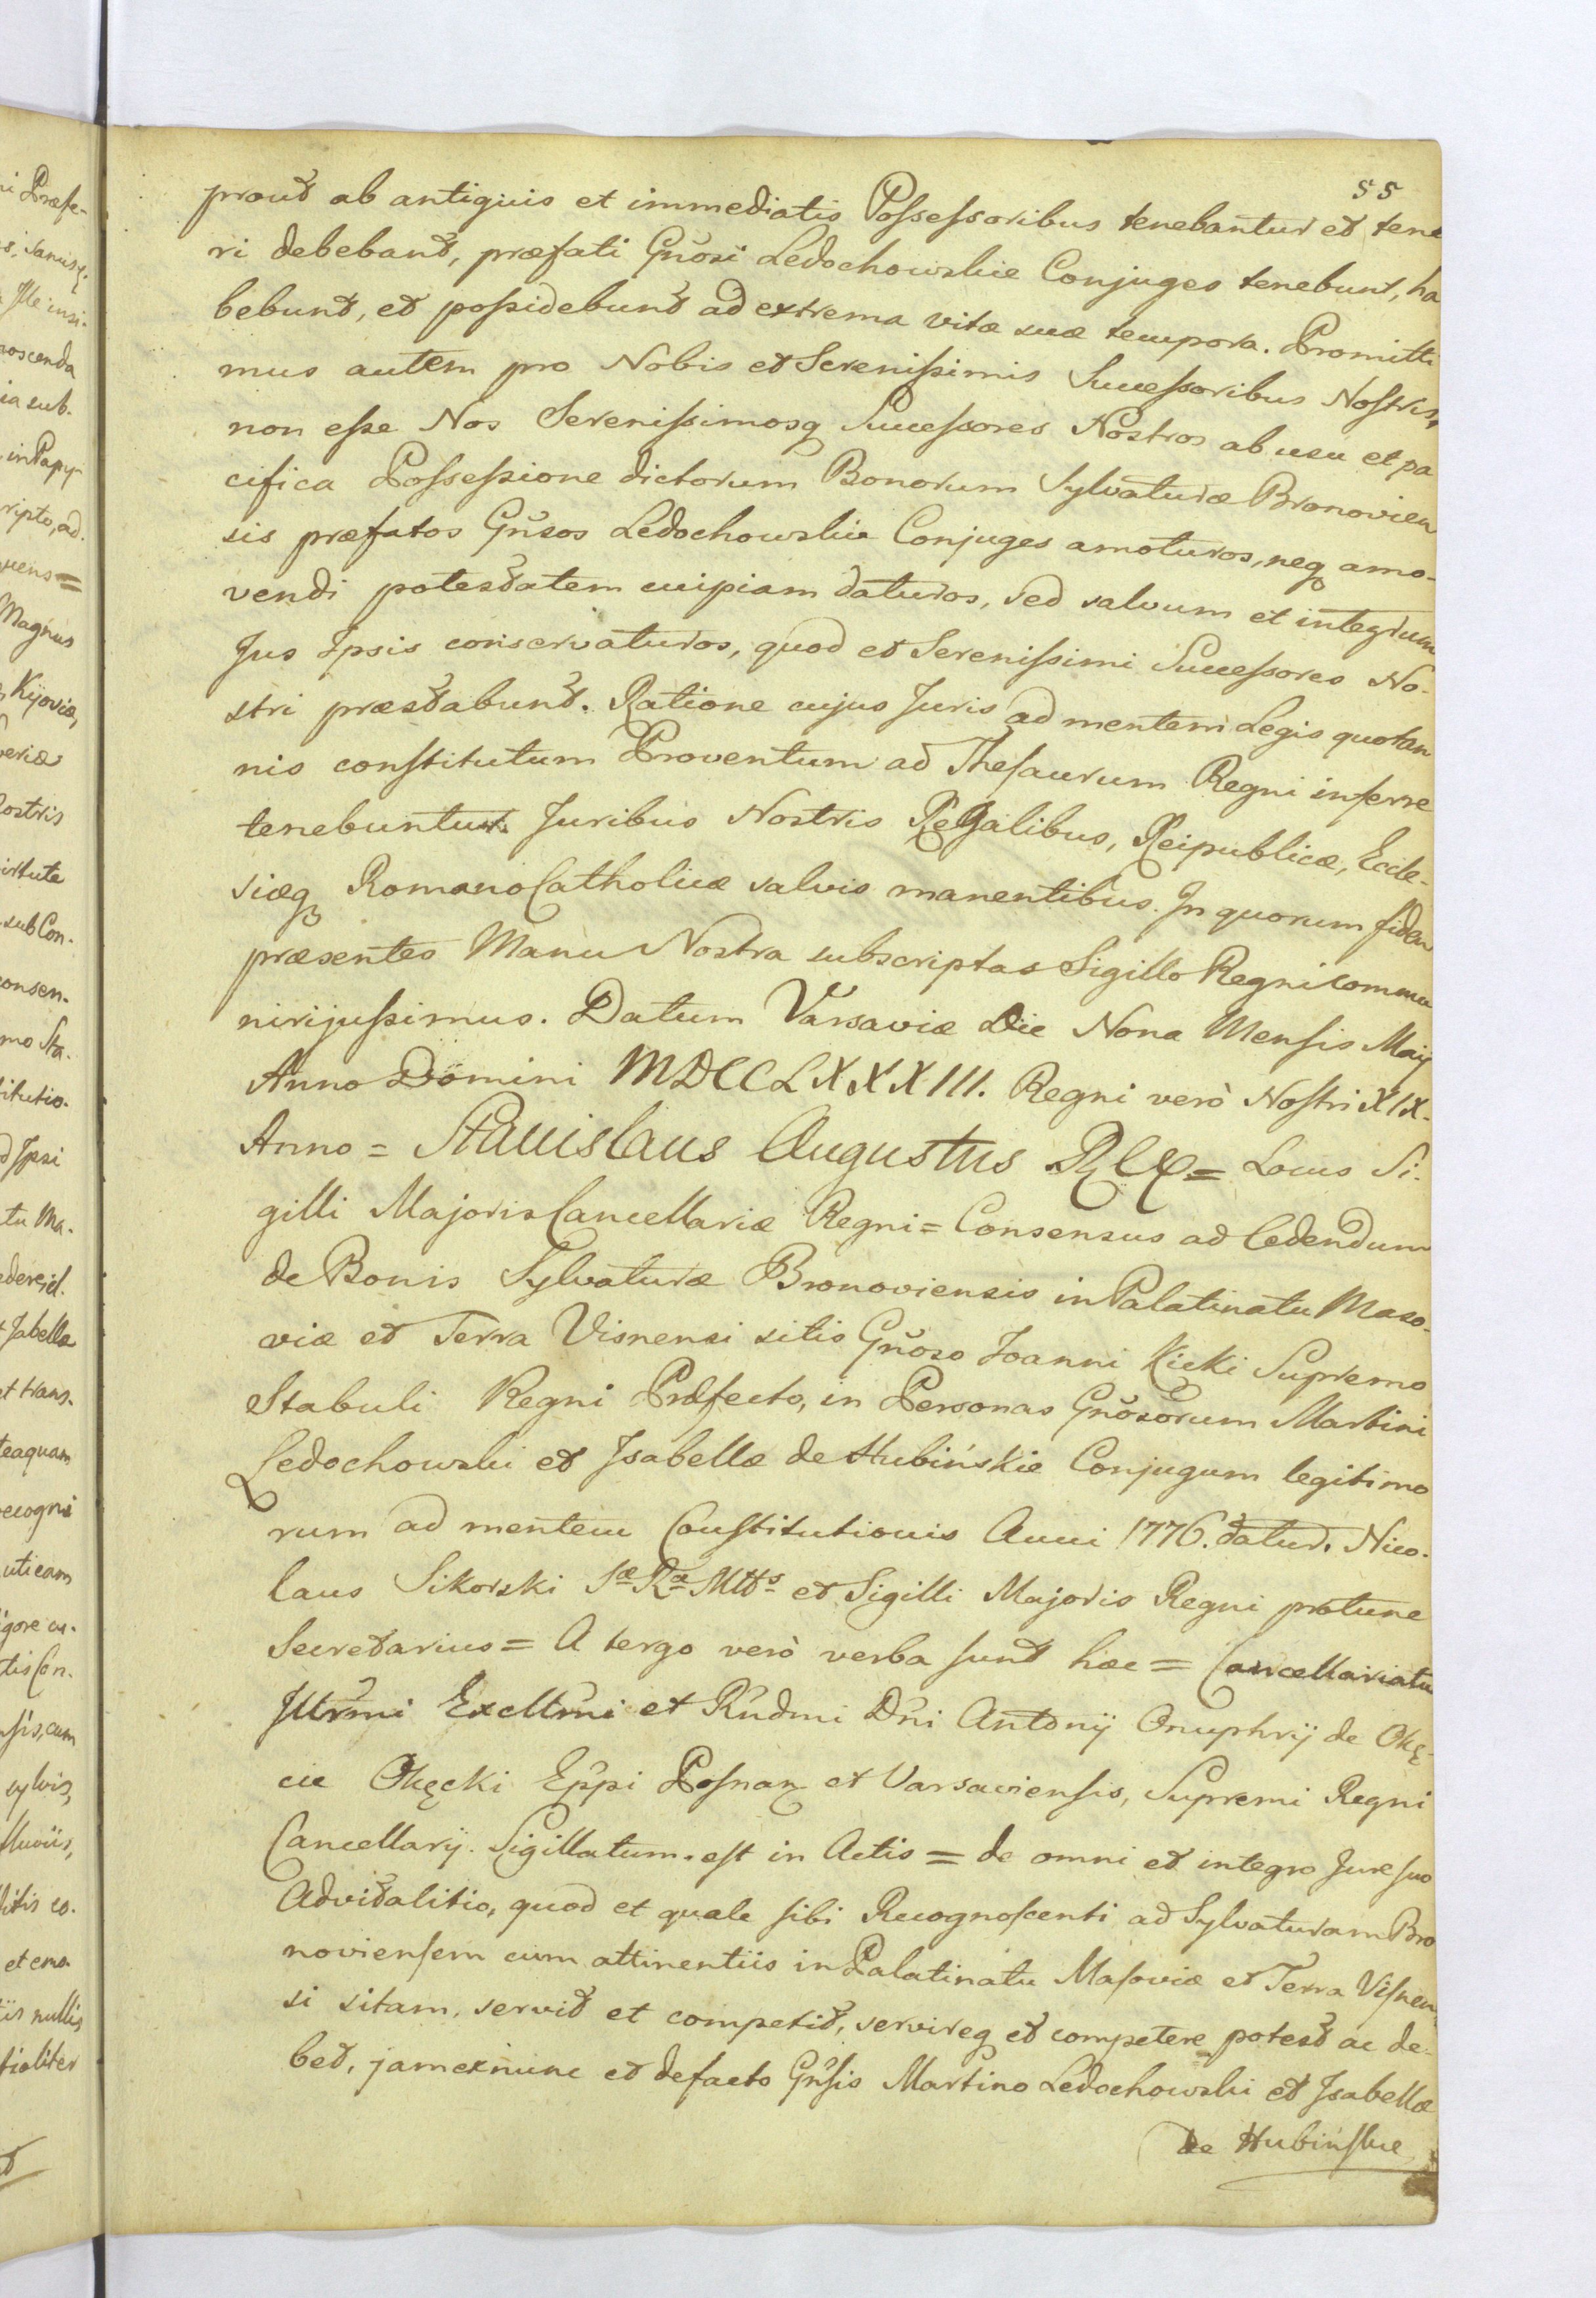 55
prout ab antiquis et immediatis Possessoribus tenebantur et tene
ri debebant, præfati Gnosi Ledochowskie Conjuges tenebunt, ha
bebunt, et possidebunt ad extrema vitæ suæ tempora. Promitti
mus autem pro Nobis et Serenissimis Successoribus Nostris,
non esse Nos Serenissimosq Successores Nostros ab usu et pa
cifica Possessione dictorum Bonorum Sylvaturæ Bronovien
sis præfatos Gnsos Ledochowskie Conjuges amoturos, neq amo-
vendi potestatem cuipiam daturos, sed salvum et integrum
Jus Ipsis conservaturos, quod et Serenissimi Successores No-
stri præstabunt. Ratione cujus Juris ad mentem Legis quotan
nis constitutum Proventum ad Thesaurum Regni inferre
tenebuntur. Juribus Nostris Regalibus, Reipublicæ, Eccle-
siæq Romano Catholicæ salvis manentibus. In quorum fidem
præsentes Manu Nostra subscriptas Sigillo Regni commu
niri jussimus. Datum Varsaviæ Die Nona Mensis Maij
Anno Domini MDCCLXXXIII. Regni verò Nostri XIX.
Anno = Stanislaus Augustus Rex = Locus Si-
gilli Majoris Cancellariæ Regni = Consensus ad Cedendum
de Bonis Sylvaturæ Bronoviensis in Palatinatu Maso-
viæ et Terra Visnensi sitis Gnoso Joanni Kicki Supremo
Stabuli Regni Præfecto, in Personas Gnosorum Martini
Ledochowski et Isabellæ de Hubińskie Conjugum legitimo
rum ad mentem Constitutionis Anni 1776. datur. Nico-
laus Sikorski Sæ Ræ Mtts et Sigilli Majoris Regni protunc
Secretarius = A tergo verò verba sunt hæc = Cancellariatu
Illrmi Excllmi et Rndmi Dni Antonij Onuphrij de Okę-
cie Okęcki Eppi Posnan et Varsaviensis, Supremi Regni
Cancellarij. Sigillatum est in Actis = de omni et integro Jure suo
Advitalitio, quod et quale sibi Recognoscenti ad Sylvaturam Bro
noviensem cum attinentiis in Palatinatu Masoviæ et Terra Visnen
si sitam, servit et competit, servireq et competere potest ac de-
bet, jam ex nunc et de facto Gnsis Martino Ledochowski et Isabellæ
de Hubinskie